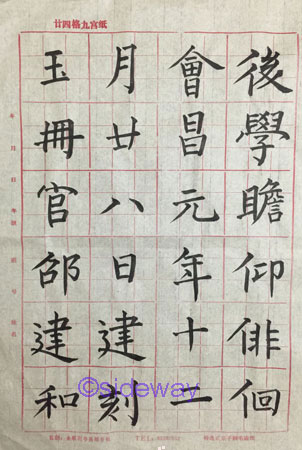 廿四格九宮纸
後學瞻仰俳佪
會昌元年十二
月廿八日建刻
玉冊官邵建和
©sideway